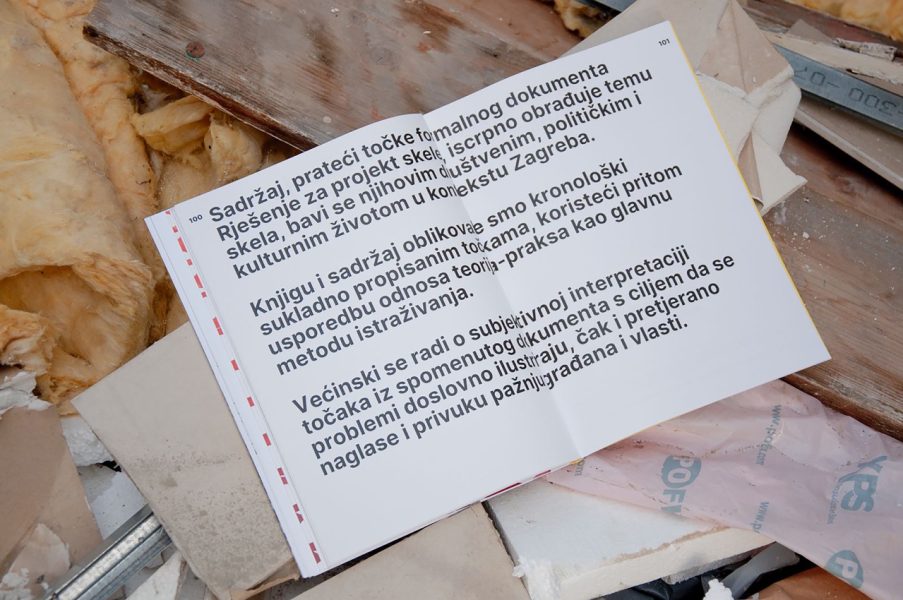 100
101
Sadržaj, prateći točke formalnog dokumenta
Rješenje za projekt skele, iscrpno obrađuje temu
skela, bavi se njihovim društvenim, političkim i
kulturnim životom u kontekstu Zagreba.
Knjigu i sadržaj oblikovale smo kronološki
sukladno propisanim točkama, koristeći pritom
usporedbu odnosa teorija-praksa kao glavnu
metodu istraživanja.
Većinski se radi o subjektivnoj interpretaciji
točaka iz spomenutog dokumenta s ciljem da se
problemi doslovno ilustriraju, čak i pretjerano
naglase i privuku pažnju građana i vlasti.
XPS